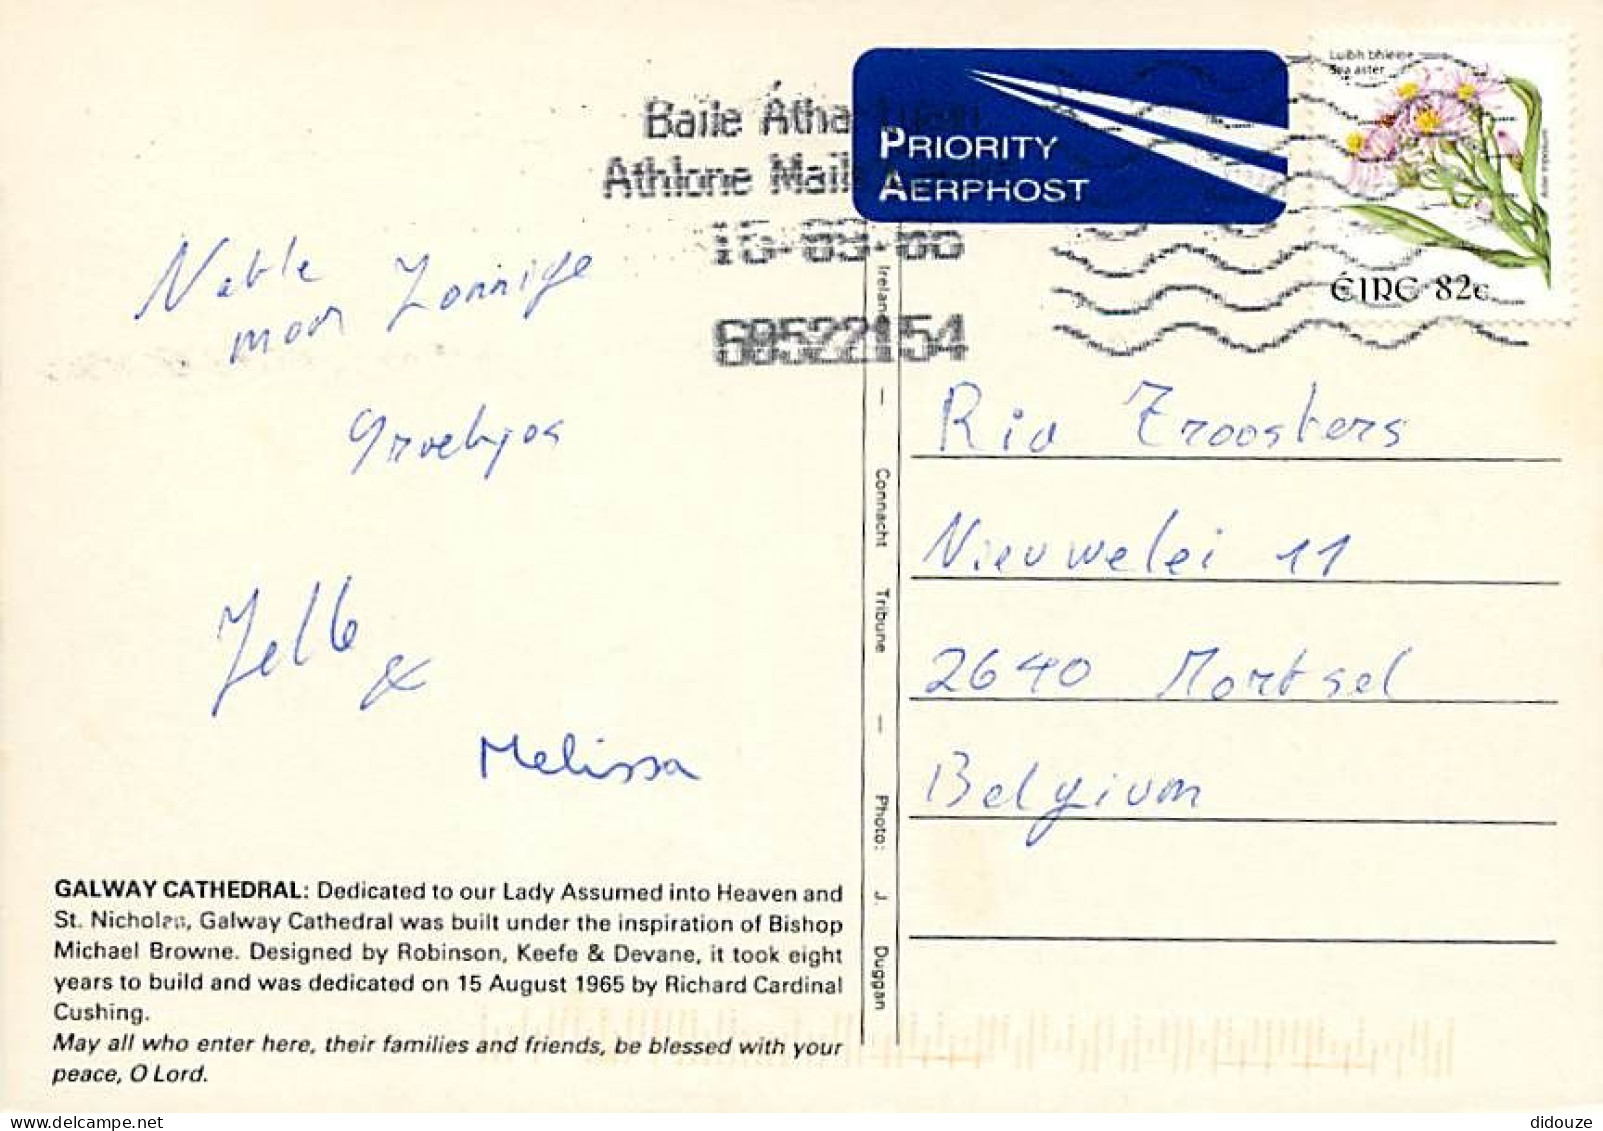 Baile Átha
Athlone Mail
68522154
PRIORITY
AERPHOST
Luibh bhleine
Sea aster
ÉIRE 82c
Natte
maar Zonnige
Groetjes
Jelle
&
Melissa
Ria Troosters
Nieuwelei 11
2640 Mortsel
Belgium
Ireland — Connacht Tribune — Photo: J. Duggan
GALWAY CATHEDRAL: Dedicated to our Lady Assumed into Heaven and
St. Nicholas, Galway Cathedral was built under the inspiration of Bishop
Michael Browne. Designed by Robinson, Keefe & Devane, it took eight
years to build and was dedicated on 15 August 1965 by Richard Cardinal
Cushing.
May all who enter here, their families and friends, be blessed with your
peace, O Lord.
didouze